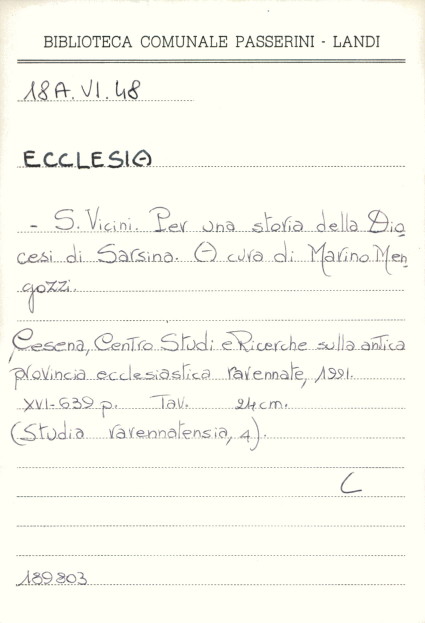 BIBLIOTECA COMUNALE PASSERINI - LANDI
18A.VI.48
ECCLESIA
- S. Vicini. Per una storia della Dio
cesi di Sarsina. A cura di Marino Men
gozzi.
Cesena, Centro Studi e Ricerche sulla antica
provincia ecclesiastica ravennate, 1991.
XVI-639 p. Tav. 24 cm.
(Studia ravennatensia, 4).
C
189803